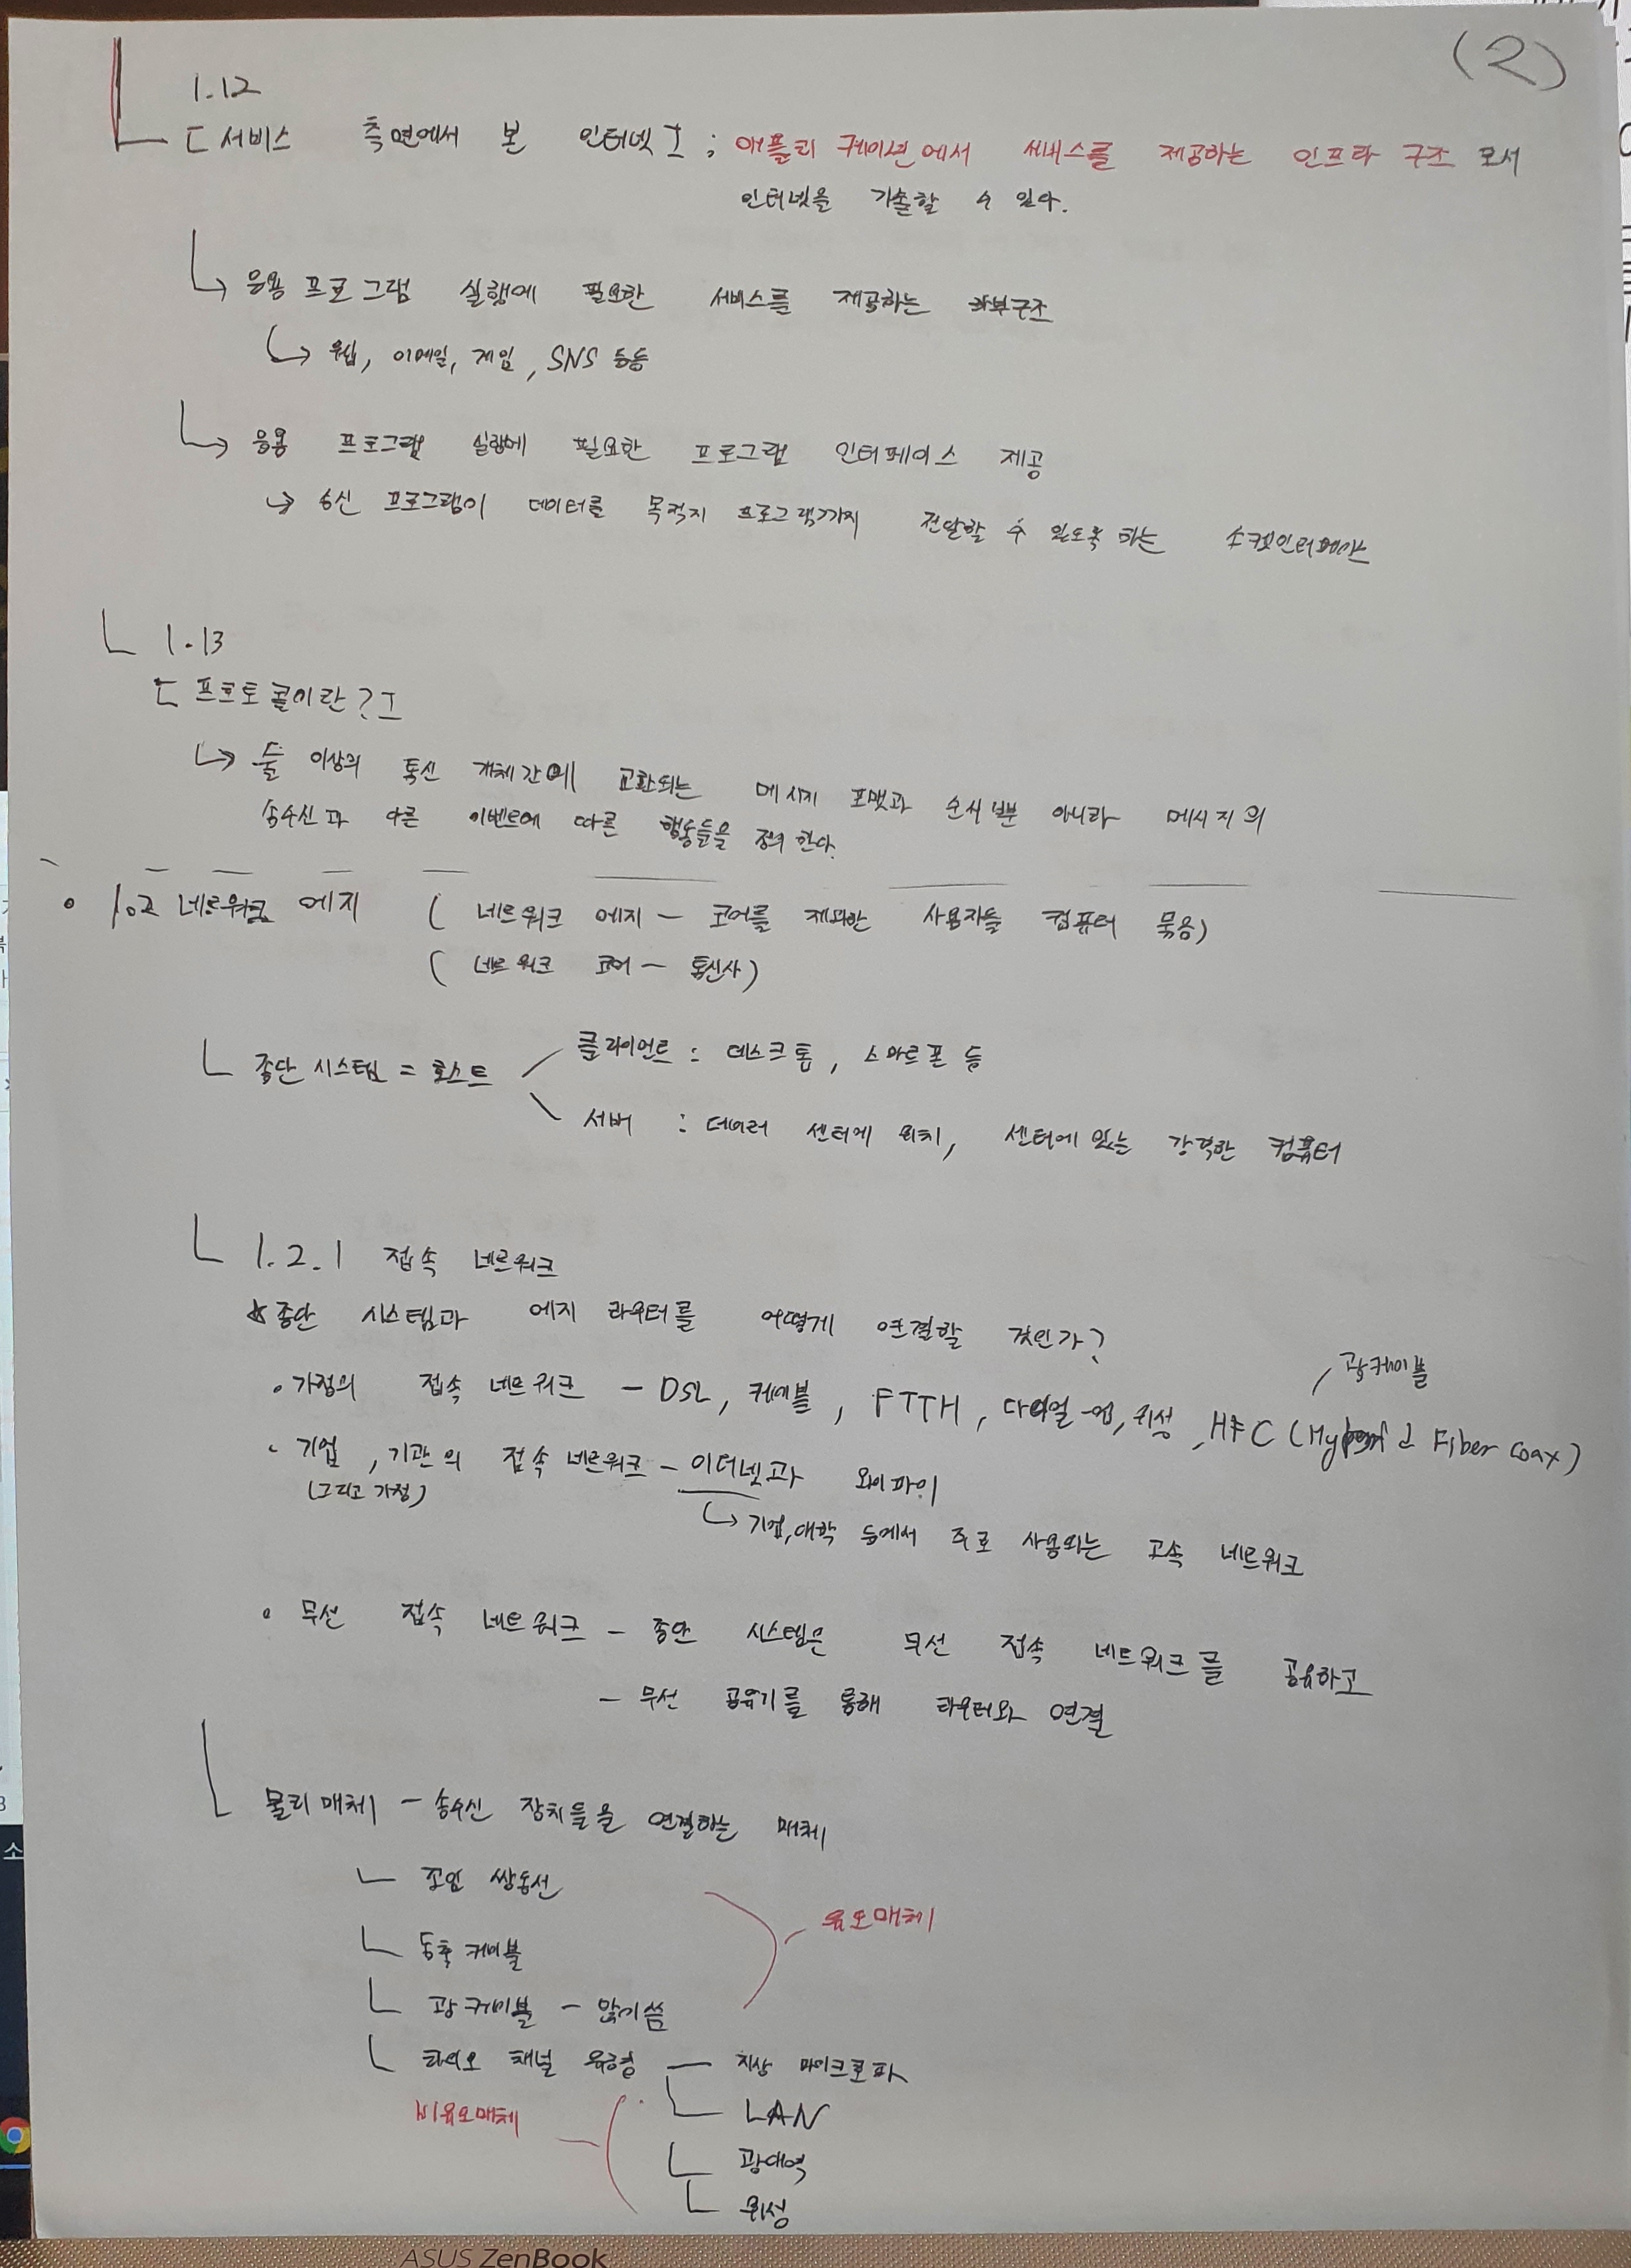 (2)
1.12
[서비스 측면에서 본 인터넷] ; 애플리케이션에서 서비스를 제공하는 인프라 구조 로서
인터넷을 기술할 수 있다.
↳ 응용 프로그램 실행에 필요한 서비스를 제공하는 하부구조
↳ 웹, 이메일, 게임, SNS 등등
↳ 응용 프로그램 실행에 필요한 프로그램 인터페이스 제공
→ 송신 프로그램이 데이터를 목적지 프로그램까지 전달할 수 있도록 하는 소켓인터페이스
1.13
[프로토콜이란?]
↳ 둘 이상의 통신 개체간에 교환되는 메시지 포맷과 순서뿐 아니라 메시지의
송수신과 다른 이벤트에 따른 행동들을 정의 한다.
• 1.2 네트워크 에지 ( 네트워크 에지 - 코어를 제외한 사용자들 컴퓨터 묶음)
( 네트워크 코어 - 통신사)
클라이언트 : 데스크톱, 스마트폰 등
종단 시스템 = 호스트
서버 : 데이터 센터에 위치, 센터에 있는 강력한 컴퓨터
1.2.1 접속 네트워크
☆종단 시스템과 에지 라우터를 어떻게 연결할 것인가?
광케이블
• 가정의 접속 네트워크 - DSL, 케이블, FTTH, 다이얼-업, 위성, HFC (Hybrid Fiber Coax)
• 기업, 기관의 접속 네트워크 - 이더넷과 와이파이
(그리고 가정)
↳ 기업, 대학 등에서 주로 사용되는 고속 네트워크
• 무선 접속 네트워크 - 종단 시스템은 무선 접속 네트워크를 공유하고
- 무선 공유기를 통해 라우터와 연결
물리매체 - 송수신 장치들을 연결하는 매체
꼬임 쌍동선
유도매체
동축 케이블
광케이블 -
라디오 채널 유형 - 지상 마이크로파
비유도매체
LAN
광대역
위성
ASUS ZenBook